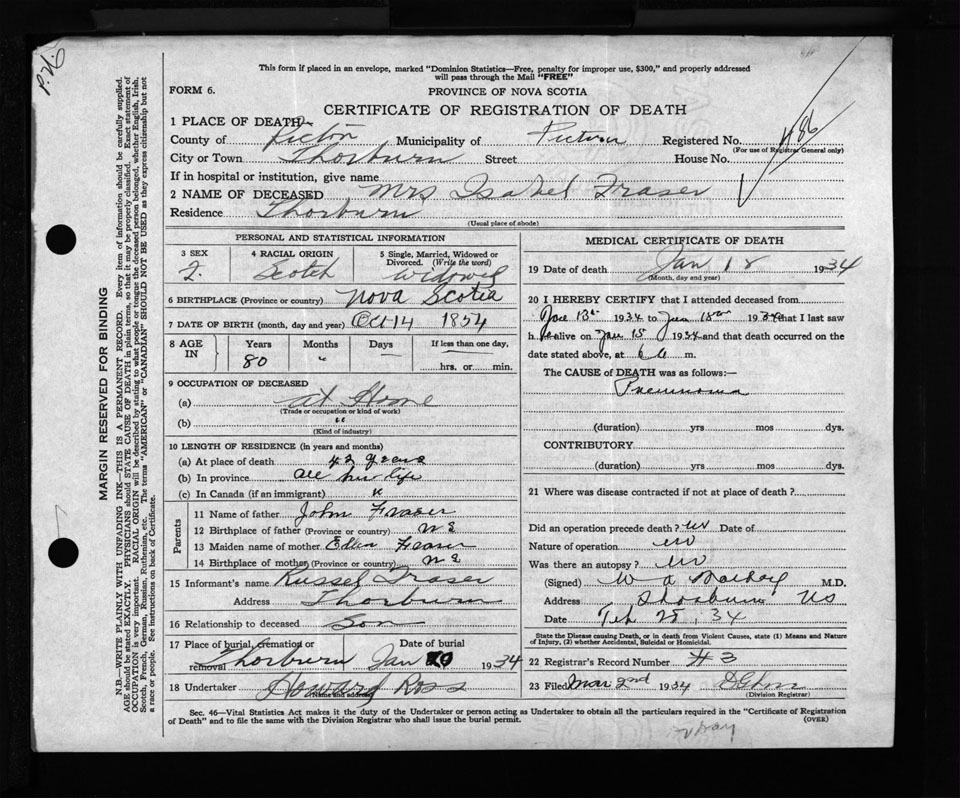 This form if placed in an envelope, marked "Dominion Statistics—Free, penalty for improper use, $300," and properly addressed
will pass through the Mail "FREE"
FORM 6.
PROVINCE OF NOVA SCOTIA
CERTIFICATE OF REGISTRATION OF DEATH
1 PLACE OF DEATH
County of Pictou Municipality of Pictou Registered No. 486
(For use of Registrar General only)
City or Town Thorburn Street House No.
If in hospital or institution, give name
2 NAME OF DECEASED Mrs Isabel Fraser
Residence Thorburn
(Usual place of abode)
PERSONAL AND STATISTICAL INFORMATION
3 SEX 4 RACIAL ORIGIN 5 Single, Married, Widowed or
Divorced. (Write the word)
F. Scotch Widowed
6 BIRTHPLACE (Province or country) Nova Scotia
7 DATE OF BIRTH (month, day and year) Oct 14 1854
8 AGE IN Years Months Days If less than one day,
80 " " hrs. or min.
9 OCCUPATION OF DECEASED
(a) at Home
(Trade or occupation or kind of work)
(b) "
(Kind of industry)
10 LENGTH OF RESIDENCE (in years and months)
(a) At place of death 42 years
(b) In province all her life
(c) In Canada (if an immigrant) "
Parents
11 Name of father John Fraser
12 Birthplace of father (Province or country) N S
13 Maiden name of mother Fraser
14 Birthplace of mother (Province or country) N S
15 Informant's name Russel Fraser
Address Thorburn
16 Relationship to deceased Son
17 Place of burial, cremation or removal Date of burial
Thorburn Jan 1934
18 Undertaker Howard Ross
MEDICAL CERTIFICATE OF DEATH
19 Date of death Jan 18 1934
(Month, day and year)
20 I HEREBY CERTIFY that I attended deceased from
13 1934 to Jan 18 1934 that I last saw
h alive on Jan 18 1934 and that death occurred on the
date stated above, at 6 m.
The CAUSE of DEATH was as follows:—
Pneumonia
(duration) yrs mos dys.
CONTRIBUTORY
(duration) yrs mos dys.
21 Where was disease contracted if not at place of death?
Did an operation precede death? no Date of
Nature of operation no
Was there an autopsy? no
(Signed) W A M.D.
Address Thorburn NS
Date Feb 28, 34
State the Disease causing Death, or in death from Violent Causes, state (1) Means and Nature
of Injury, (2) whether Accidental, Suicidal or Homicidal.
22 Registrar's Record Number #3
23 Filed Mar 2nd 1934
(Division Registrar)
Sec. 46—Vital Statistics Act makes it the duty of the Undertaker or person acting as Undertaker to obtain all the particulars required in the "Certificate of Registration
of Death" and to file the same with the Division Registrar who shall issue the burial permit.
(OVER)
MARGIN RESERVED FOR BINDING
N.B.—WRITE PLAINLY WITH UNFADING INK—THIS IS A PERMANENT RECORD. Every item of information should be carefully supplied.
AGE should be stated EXACTLY. PHYSICIANS should STATE CAUSE OF DEATH in plain terms, so that it may be properly classified. Exact statement of
OCCUPATION is very important. RACIAL ORIGIN will be described by stating to what people or tongue the deceased person belonged, whether English, Irish,
Scotch, French, German, Russian, Ruthenian, etc. The terms "AMERICAN" or "CANADIAN" SHOULD NOT BE USED as they express citizenship but not
a race or people. See instructions on back of Certificate.